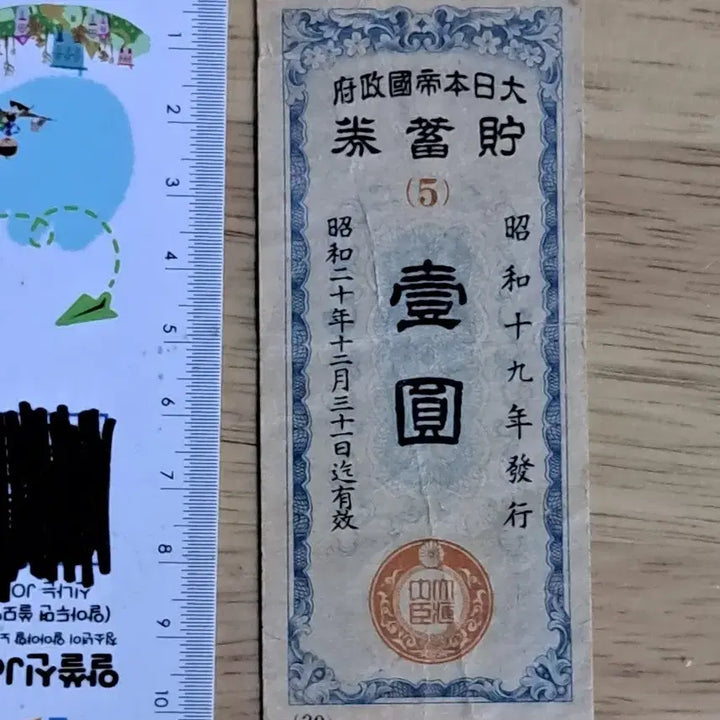 大日本帝國政府
貯蓄券
(5)
昭和十九年發行
壹圓
昭和二十年十二月三十一日迄有效
大藏大臣
1
2
3
4
5
6
7
8
9
10